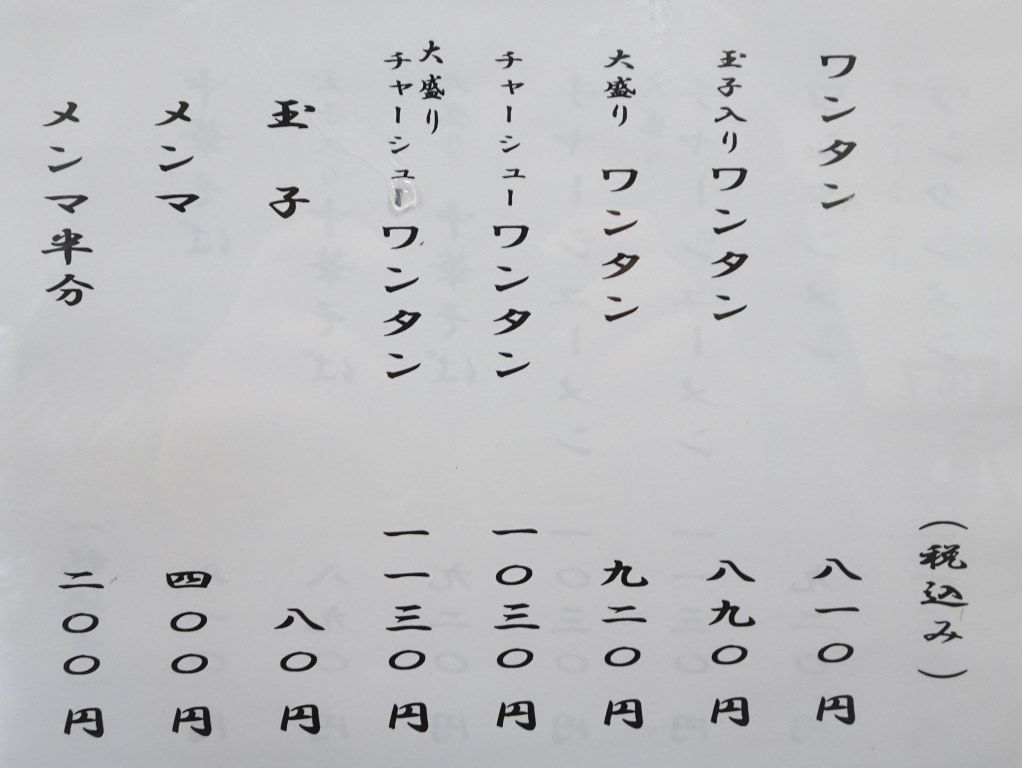 （税込み）
ワンタン 八一〇円
玉子入りワンタン 八九〇円
大盛りワンタン 九二〇円
チャーシューワンタン 一〇三〇円
大盛りチャーシューワンタン 一一三〇円
玉子 八〇円
メンマ 四〇〇円
メンマ半分 二〇〇円